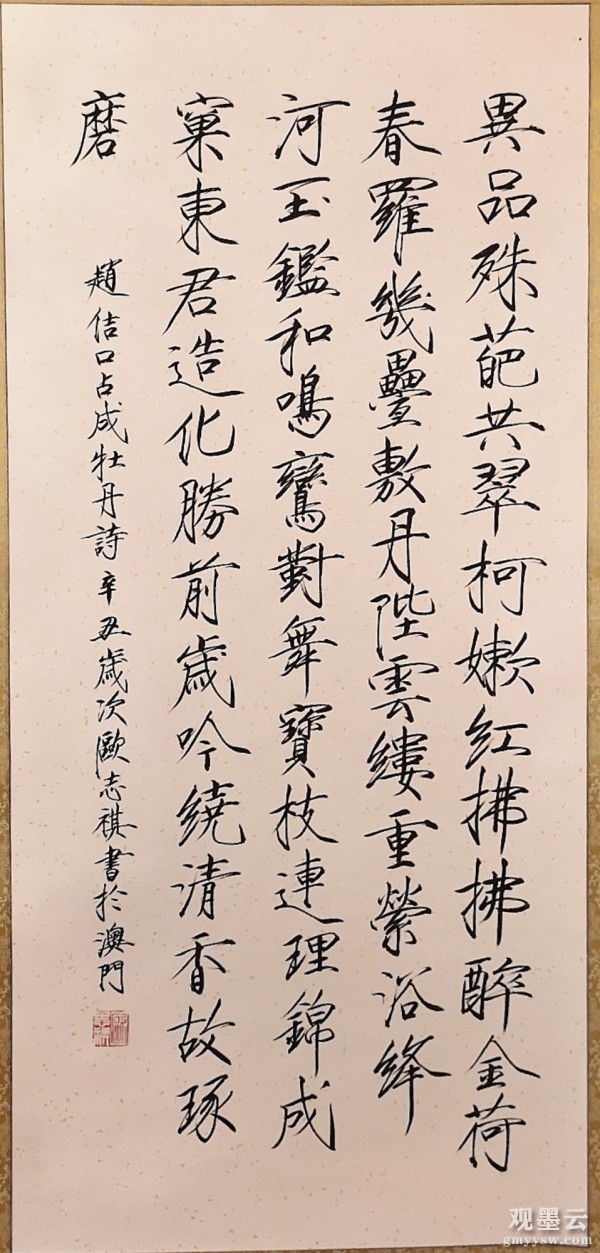 異品殊葩共翠柯嫩紅拂拂醉金荷
春羅幾疊敷丹陛雲縷重縈浴絳
河玉鑑和鳴鸞對舞寶枝連理錦成
窠東君造化勝前歲吟繞清香故琢
磨
趙佶口占成牡丹詩辛丑歲次歐志祺書於澳門
观墨云
gmyysw.com